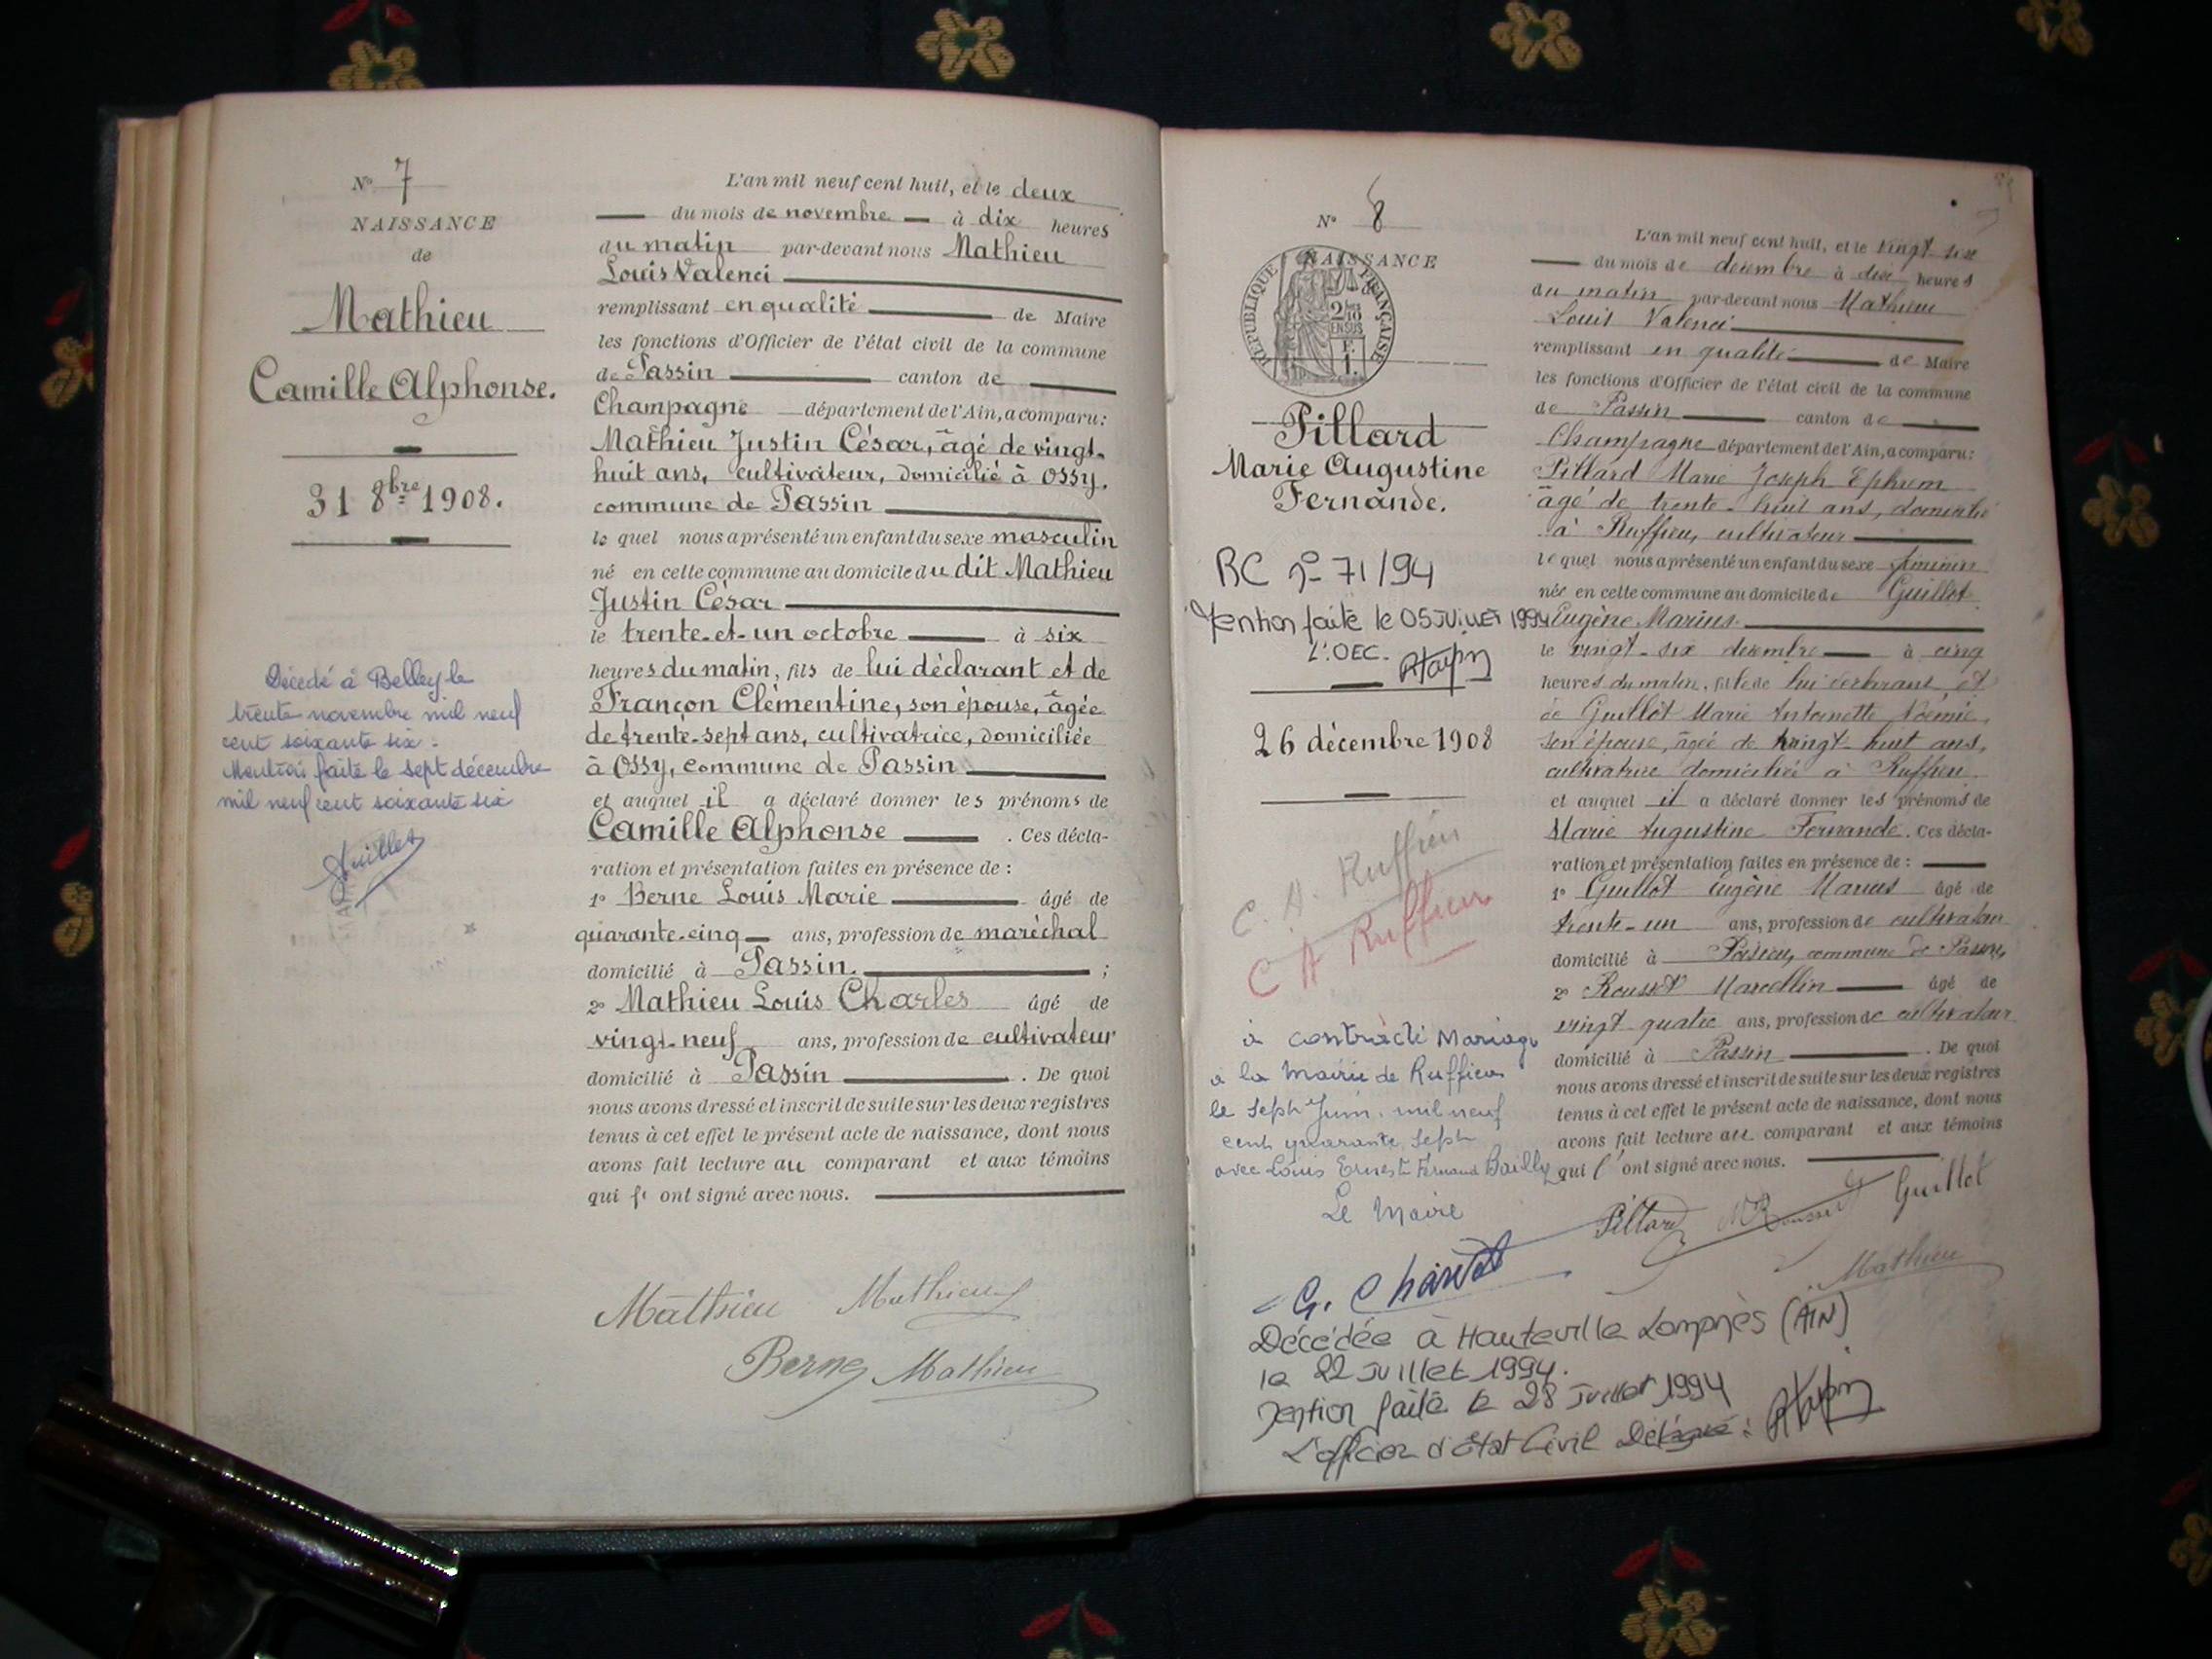 N° 7
NAISSANCE
de
Mathieu
Camille Alphonse.
31 8bre 1908.
Décédé à Belley le
trente novembre mil neuf
cent soixante six.
Mention faite le sept décembre
mil neuf cent soixante six
L'an mil neuf cent huit, et le deux
du mois de novembre à dix heures
du matin par-devant nous Mathieu
Louis Valenci
remplissant en qualité de Maire
les fonctions d'Officier de l'état civil de la commune
de Passin canton de
Champagne département de l'Ain, a comparu:
Mathieu Justin César, âgé de vingt-
huit ans, cultivateur, domicilié à Ossy,
commune de Passin
le quel nous a présenté un enfant du sexe masculin
né en cette commune au domicile du dit Mathieu
Justin César
le trente-et-un octobre à six
heures du matin, fils de lui déclarant et de
Françon Clémentine, son épouse, âgée
de trente-sept ans, cultivatrice, domiciliée
à Ossy, commune de Passin
et auquel il a déclaré donner les prénoms de
Camille Alphonse . Ces décla-
ration et présentation faites en présence de :
1° Berne Louis Marie âgé de
quarante-cinq ans, profession de maréchal
domicilié à Passin. ;
2° Mathieu Louis Charles âgé de
vingt-neuf ans, profession de cultivateur
domicilié à Passin . De quoi
nous avons dressé et inscrit de suite sur les deux registres
tenus à cet effet le présent acte de naissance, dont nous
avons fait lecture au comparant et aux témoins
qui ont signé avec nous.
Mathieu Mathieu
Berne Mathieu
N° 8
NAISSANCE
REPUBLIQUE FRANÇAISE
2/10
EN SUS
F.
1.
Pillard
Marie Augustine
Fernande.
RC n° 71/94
Mention faite le 05 JUILLET 1994
L'.OEC.
26 décembre 1908
C. A. Ruffieu
C A Ruffieu
à contracté Mariage
a la Mairie de Ruffieu
le sept Juin mil neuf
cent quarante sept
avec Louis Ernest Fernand Bailly
Le Maire
Décédée à Hauteville Lompnès (AIN)
le 22 Juillet 1994.
Mention faite le 28 Juillet 1994
L'officier d'Etat Civil Délégué :
L'an mil neuf cent huit, et le vingt six
du mois de décembre à dix heures
du matin par-devant nous Mathieu
Louis Valenci
remplissant en qualité de Maire
les fonctions d'Officier de l'état civil de la commune
de Passin canton de
Champagne département de l'Ain, a comparu:
Pillard Marie Joseph Ephrem
âgé de trente-huit ans, domicilié
à Ruffieu, cultivateur
le quel nous a présenté un enfant du sexe féminin
née en cette commune au domicile de Guillot
Eugène Marius
le vingt-six décembre à cinq
heures du matin, fille de lui déclarant et
de Guillot Marie Antoinette Noémie,
son épouse, âgée de vingt-huit ans,
cultivatrice domiciliée à Ruffieu
et auquel il a déclaré donner les prénoms de
Marie Augustine Fernande. Ces décla-
ration et présentation faites en présence de :
1° Guillot Eugène Marius âgé de
trente-un ans, profession de cultivateur
domicilié à commune de Passin,
2° Rousset Marcellin âgé de
vingt quatre ans, profession de cultivateur
domicilié à Passin . De quoi
nous avons dressé et inscrit de suite sur les deux registres
tenus à cet effet le présent acte de naissance, dont nous
avons fait lecture au comparant et aux témoins
qui l'ont signé avec nous.
Pillard M Rousset Guillot
Mathieu